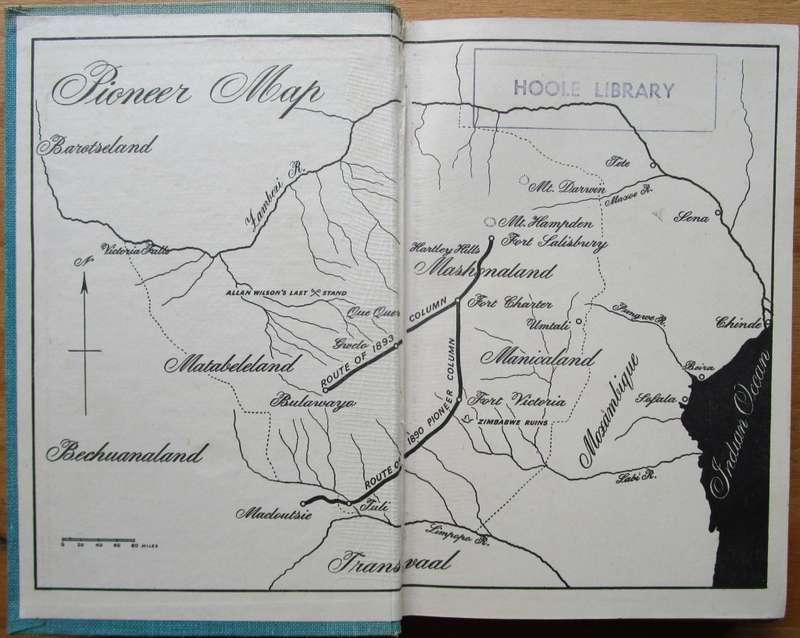 Pioneer Map
HOOLE LIBRARY
Barotseland
Zambezi R.
Tete
Mt. Darwin
Mazoe R.
Sena
Mt. Hampden
Fort Salisbury
Hartley Hills
Victoria Falls
N
Mashonaland
ALLAN WILSON'S LAST STAND
Fort Charter
Que Que
Gwelo
ROUTE OF 1893 COLUMN
Umtali
Pungwe R.
Chinde
Matabeleland
Manicaland
Beira
Bulawayo
Fort Victoria
Sofala
Mozambique
Indian Ocean
ZIMBABWE RUINS
ROUTE OF 1890 PIONEER COLUMN
Bechuanaland
Sabi R.
Macloutsie
Tuli
Limpopo R.
0 20 40 60 80 MILES
Transvaal